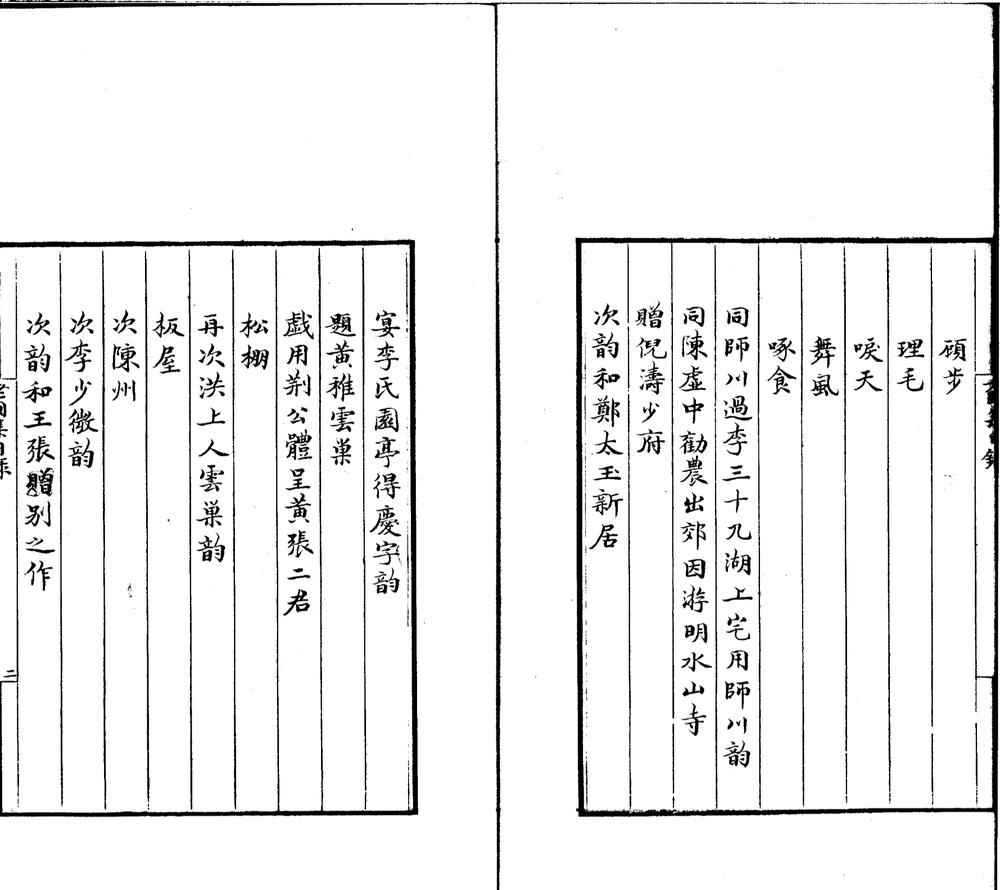 顧步
理毛
唳天
舞風
啄食
同師川過李三十九湖上宅用師川韵
同陳虛中勸農出郊因游明水山寺
贈倪濤少府
次韵和鄭太玉新居
宴李氏園亭得慶字韵
題黄稚雲巢
戲用荆公體呈黄張二君
松棚
再次洪上人雲巢韵
板屋
次陳州
次李少微韵
次韵和王張贈别之作
二